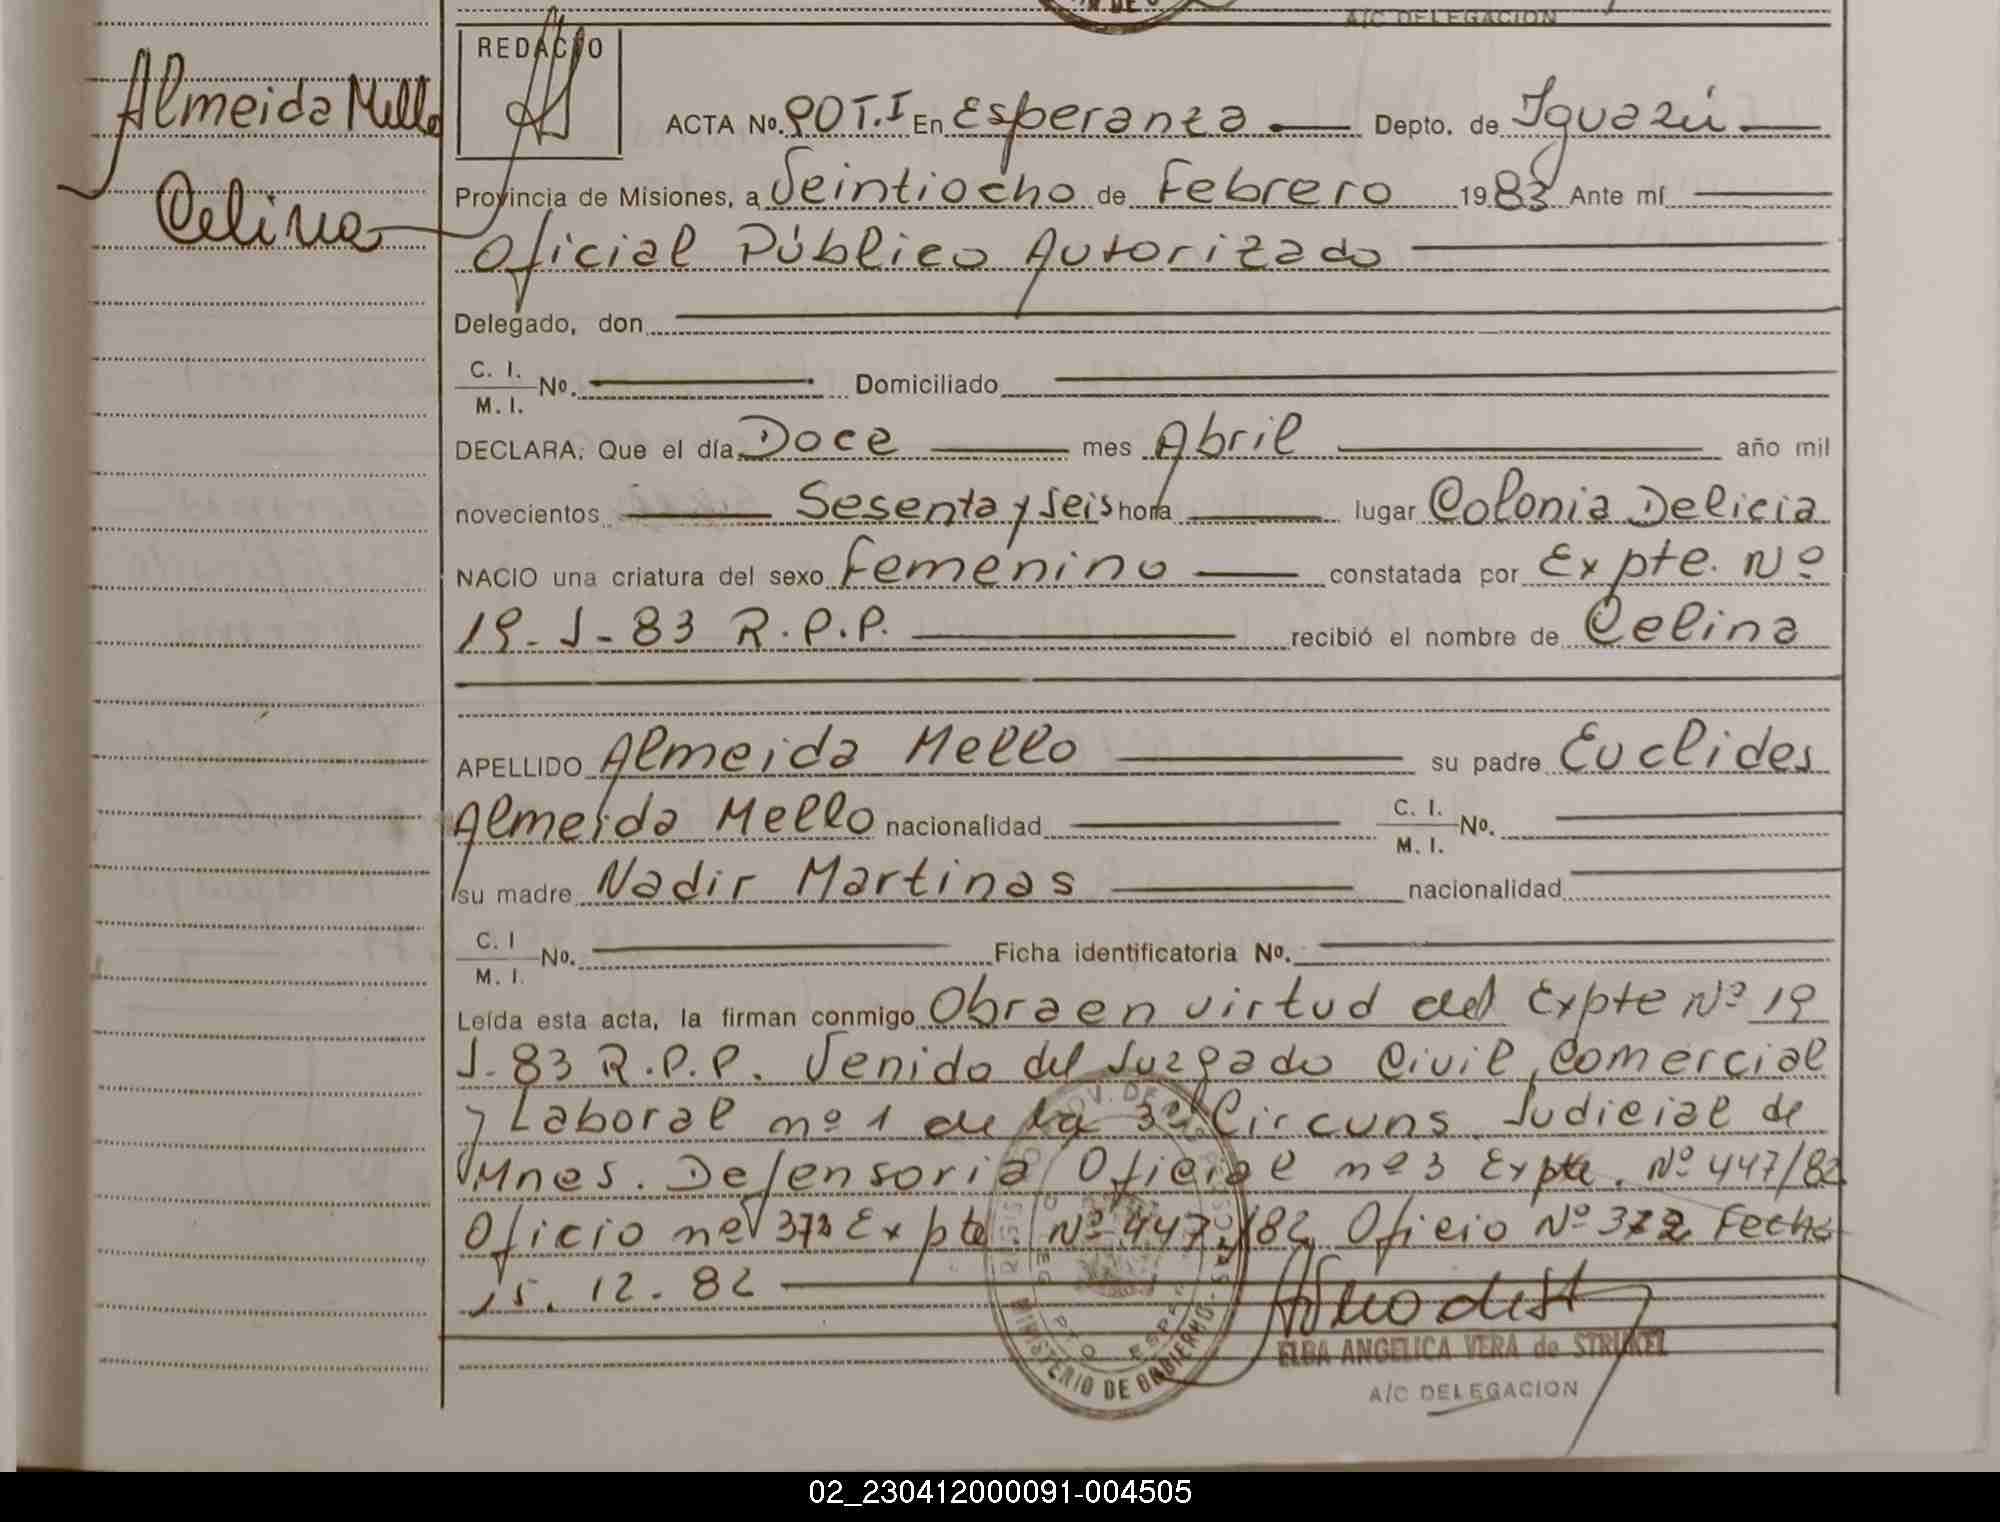 A/C DELEGACION
REDACTO
Almeida Mello
Celina
ACTA Nº. 90 T.I En Esperanza Depto. de Iguazú
Provincia de Misiones, a Veintiocho de Febrero 1983 Ante mí
Oficial Público Autorizado
Delegado, don
C. I.
M. I. Nº. Domiciliado
DECLARA: Que el día Doce mes Abril año mil
novecientos Sesenta y Seis hora lugar Colonia Delicia
NACIO una criatura del sexo Femenino constatada por Expte. Nº
19-J-83 R.P.P. recibió el nombre de Celina
APELLIDO Almeida Mello su padre Euclides
Almeida Mello nacionalidad C. I.
M. I. Nº.
su madre Nadir Martinas nacionalidad
C. I
M. I. Nº. Ficha identificatoria Nº.
Leída esta acta, la firman conmigo Obra en virtud del Expte Nº 19
J-83 R.P.P. Venido del Juzgado Civil, Comercial
y Laboral nº 1 de la 3ª Circuns. Judicial de
Mnes. Defensoria Oficial nº 3 Expte. Nº 447/82
Oficio nº 372 Expte. Nº 447/82 Oficio Nº 372 Fecha
15.12.82
MINISTERIO DE GOBIERNO
ELBA ANGELICA VERA de STRIKEL
A/C DELEGACION
02_230412000091-004505